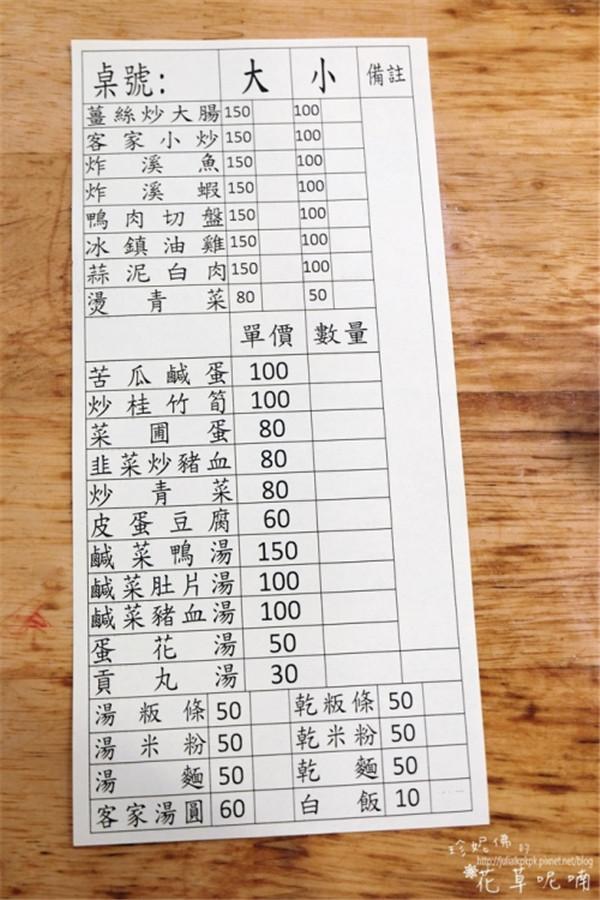 桌號: 大 小 備註
薑絲炒大腸 150 100
客家小炒 150 100
炸溪魚 150 100
炸溪蝦 150 100
鴨肉切盤 150 100
冰鎮油雞 150 100
蒜泥白肉 150 100
燙青菜 80 50
單價 數量
苦瓜鹹蛋 100
炒桂竹筍 100
菜圃蛋 80
韭菜炒豬血 80
炒青菜 80
皮蛋豆腐 60
鹹菜鴨湯 150
鹹菜肚片湯 100
鹹菜豬血湯 100
蛋花湯 50
貢丸湯 30
湯粄條 50 乾粄條 50
湯米粉 50 乾米粉 50
湯麵 50 乾麵 50
客家湯圓 60 白飯 10
珍妮佛的
http://juliakpkpk.pixnet.net/blog
花草呢喃